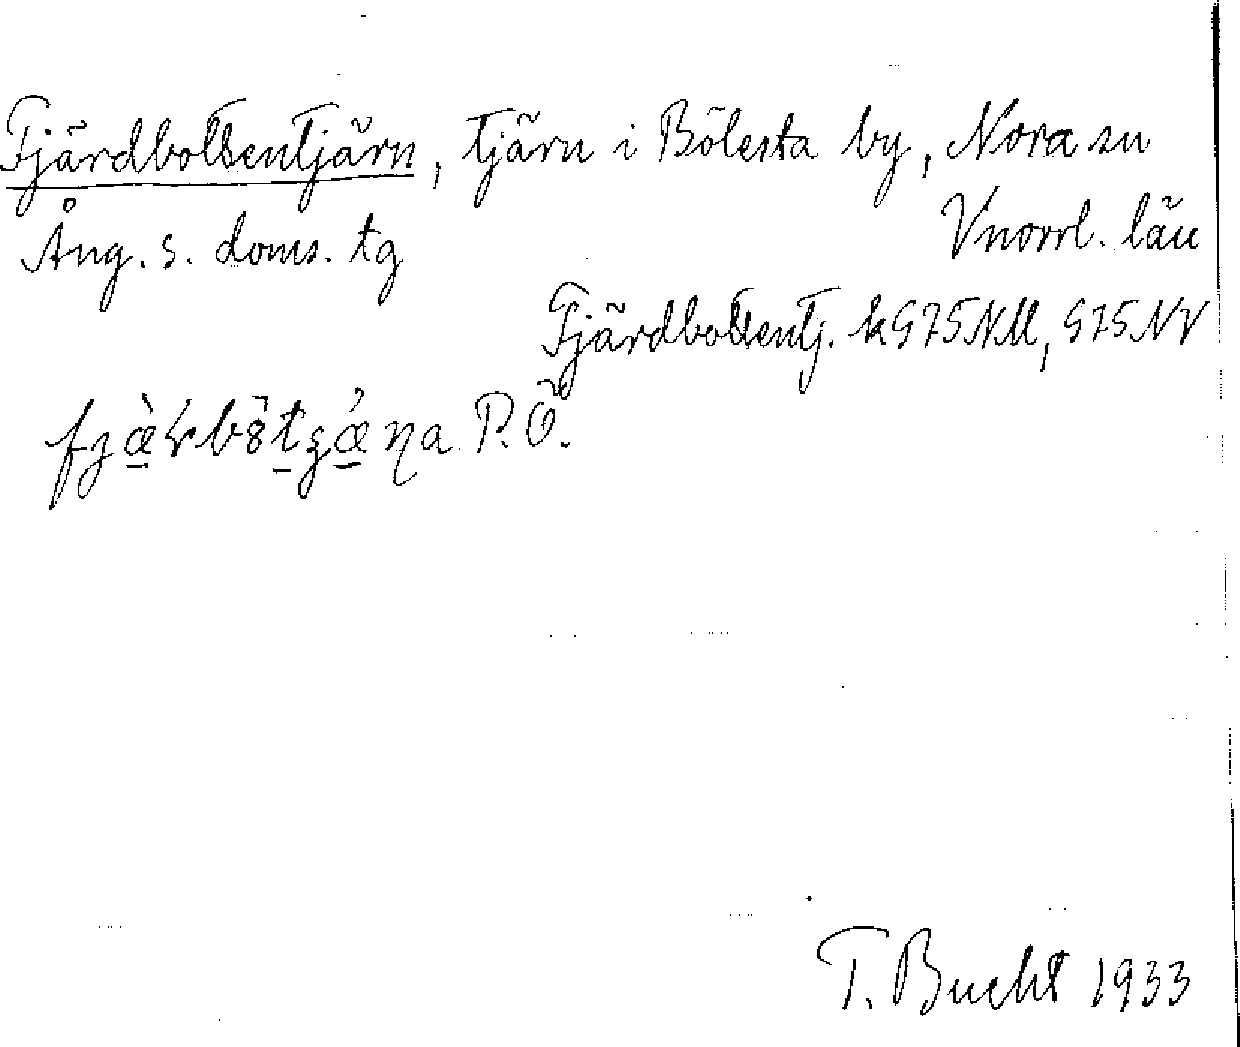 Fjärdbottentjärn, tjärn i Bölesta by, Nora sn
Ång. s. doms. tg Vnorrl. län
Fjärdbottentj. k 575 NM, 575 NV
P. Ö.
T. Bucht 1933